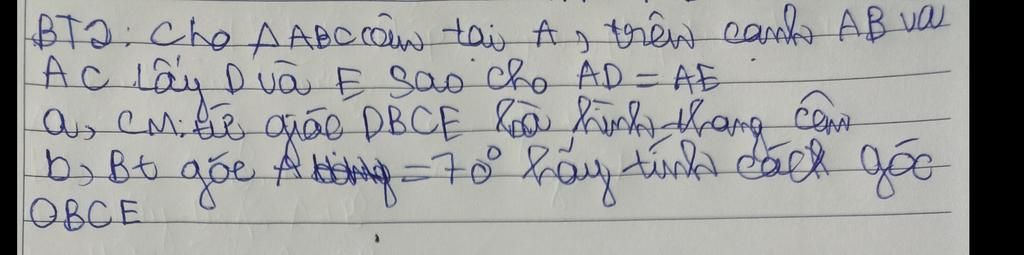 BT2: Cho ΔABC cân tại A, trên cạnh AB và
AC lấy D và E sao cho AD = AE
a, CM: tứ giác DBCE là hình thang cân
b, Bt góc A = 70° hãy tính các góc
DBCE